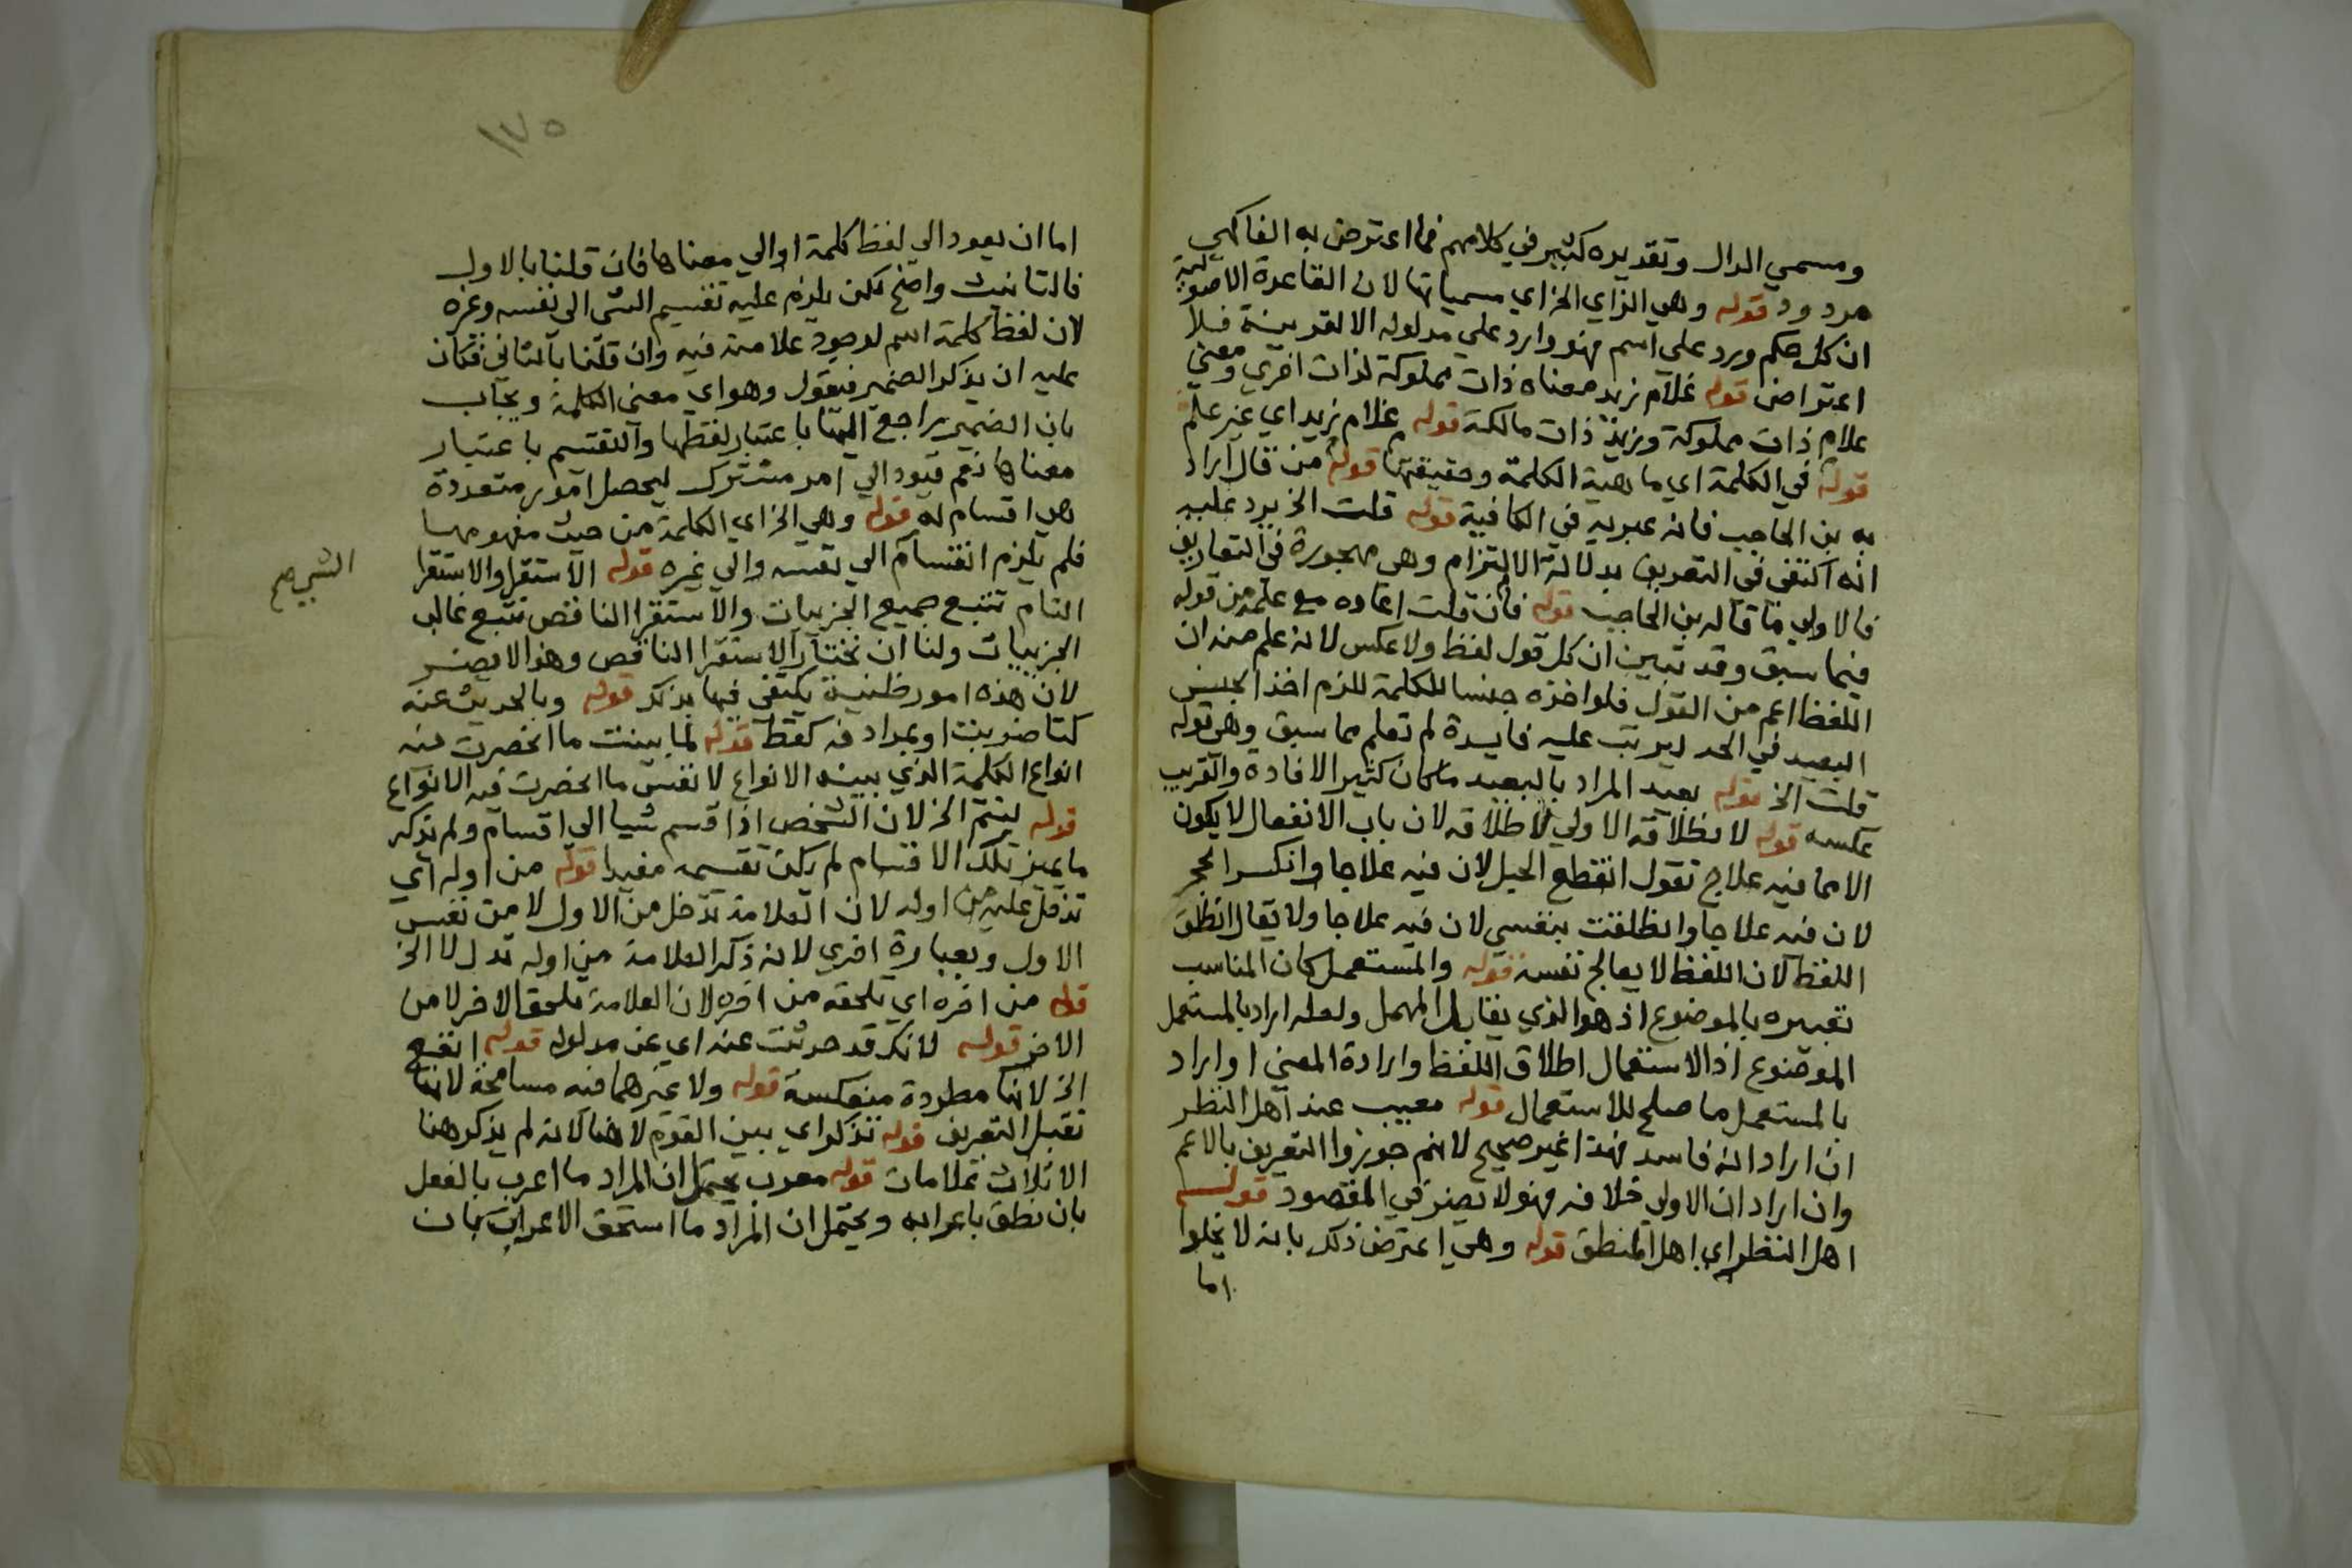 ومسمي الدال وتقديره كثير في كلامهم فما اعترض به الفاكهي
مردود قوله وهي الزاي الخ اي مسمياتها لان القاعدة الاصولية
ان كل حكم ورد علي اسم فهو وارد علي مدلوله الا لقرينة فلا
اعتراض قوله غلام زيد معناه ذات مملوكة لذات اخري ومعني
غلام ذات مملوكة وزيد ذات مالكة قوله غلام زيد اي غير علم
قوله في الكلمة اي ماهية الكلمة وحقيقتها قوله من قال اراد
به بن الحاجب فانه عبر به في الكافية قوله قلت الخ يرد عليه
انه اكتفي في التعريف بدلالة الالتزام وهي مهجورة في التعاريف
فالاولي ما قاله بن الحاجب قوله فان قلت اعاده مع علمه من قوله
فيما سبق وقد تبين ان كل قول لفظ ولا عكس لانه علم منه ان
اللفظ اعم من القول فلو اخذه جنسا للكلمة للزم اخذ الجنس
البعيد في الحد ليرتب عليه فايدة لم تعلم مما سبق وهي قوله
قلت الخ قوله بعيد المراد بالبعيد ما كان كثير الافادة والقريب
عكسه قوله لانطلاقه الاولي لاطلاقه لان باب الانفعال لا يكون
الا مما فيه علاج تقول انقطع الحبل لان فيه علاجا وانكسر الحجر
لان فيه علاجا وانطلقت بنفسي لان فيه علاجا ولا يقال انطلق
اللفظ لان اللفظ لا يعالج نفسه قوله والمستعمل كان المناسب
تعبيره بالموضوع اذ هو الذي يقابل المهمل ولعله اراد بالمستعمل
الموضوع اذ الاستعمال اطلاق اللفظ وارادة المعني او اراد
بالمستعمل ما صلح للاستعمال قوله معيب عند اهل النظر
ان اراد انه فاسد فهذا غير صحيح لانهم جوزوا التعريف بالاعم
وان اراد ان الاولي خلافه فهو لا يضر في المقصود قوله
اهل النظر اي اهل المنطق قوله وهي اعترض ذلك بانه لا يخلوا
اما
١٧٥
اما ان يعود الي لفظ كلمة او الي معناها فان قلنا بالاول
فالتانيث واضح لكن يلزم عليه تقسيم الشي الى نفسه وغيره
لان لفظ كلمة اسم لوجود علامة فيه وان قلنا بالثاني فكان
عليه ان يذكر الضمير فيقول وهو اي معني الكلمة ويجاب
بان الضمير راجع اليها باعتبار لفظها والتقسيم باعتبار
معناها نعم قيود الي امر مشترك ليحصل امور متعددة
هي اقسام له قوله وهي الخ اي الكلمة من حيث مفهومها
فلم يلزم انقسام الي نفسه والي غيره قوله الاستقرا والاستقرا
التام تتبع جميع الجزييات والاستقرا الناقص تتبع غالب
الجزييات ولنا ان نختار الاستقرا الناقص وهذا لا يضر
لان هذه امور ظنية يكتفي فيها بذلك قوله وبالحديث عنه
كتا ضربت او بمرادفه كقط قوله لما بينت ما انحصرت فيه
انواع الكلمة الذي بينه الانواع لا نفس ما انحصرت فيه الانواع
قوله ليتم الخ لان الشخص اذا قسم شيا الى اقسام ولم يذكر
ما يميز تلك الاقسام لم يكن تقسيمه مفيدا قوله من اوله اي
تدخل عليه من اوله لان العلامة تدخل من الاول لا من نفس
الاول وبعبارة اخري لانه ذكر العلامة من اوله تدل لا الخ
قوله من اخره اي تلحقه من اخره لان العلامة تلحق الاخر لا من
الاخر قوله لانك قد حدثت عنه اي عن مدلوله قوله انفع
الخ لانها مطردة منعكسة قوله ولا غيرهما فيه مسامحة لانها
تقبل التعريف قوله تذكر اي بين القوم لا هنا لانه لم يذكر هنا
الا ثلاث علامات قوله معرب يحتمل ان المراد ما اعرب بالفعل
بان نطق باعرابه ويحتمل ان المراد ما استحق الاعراب بان